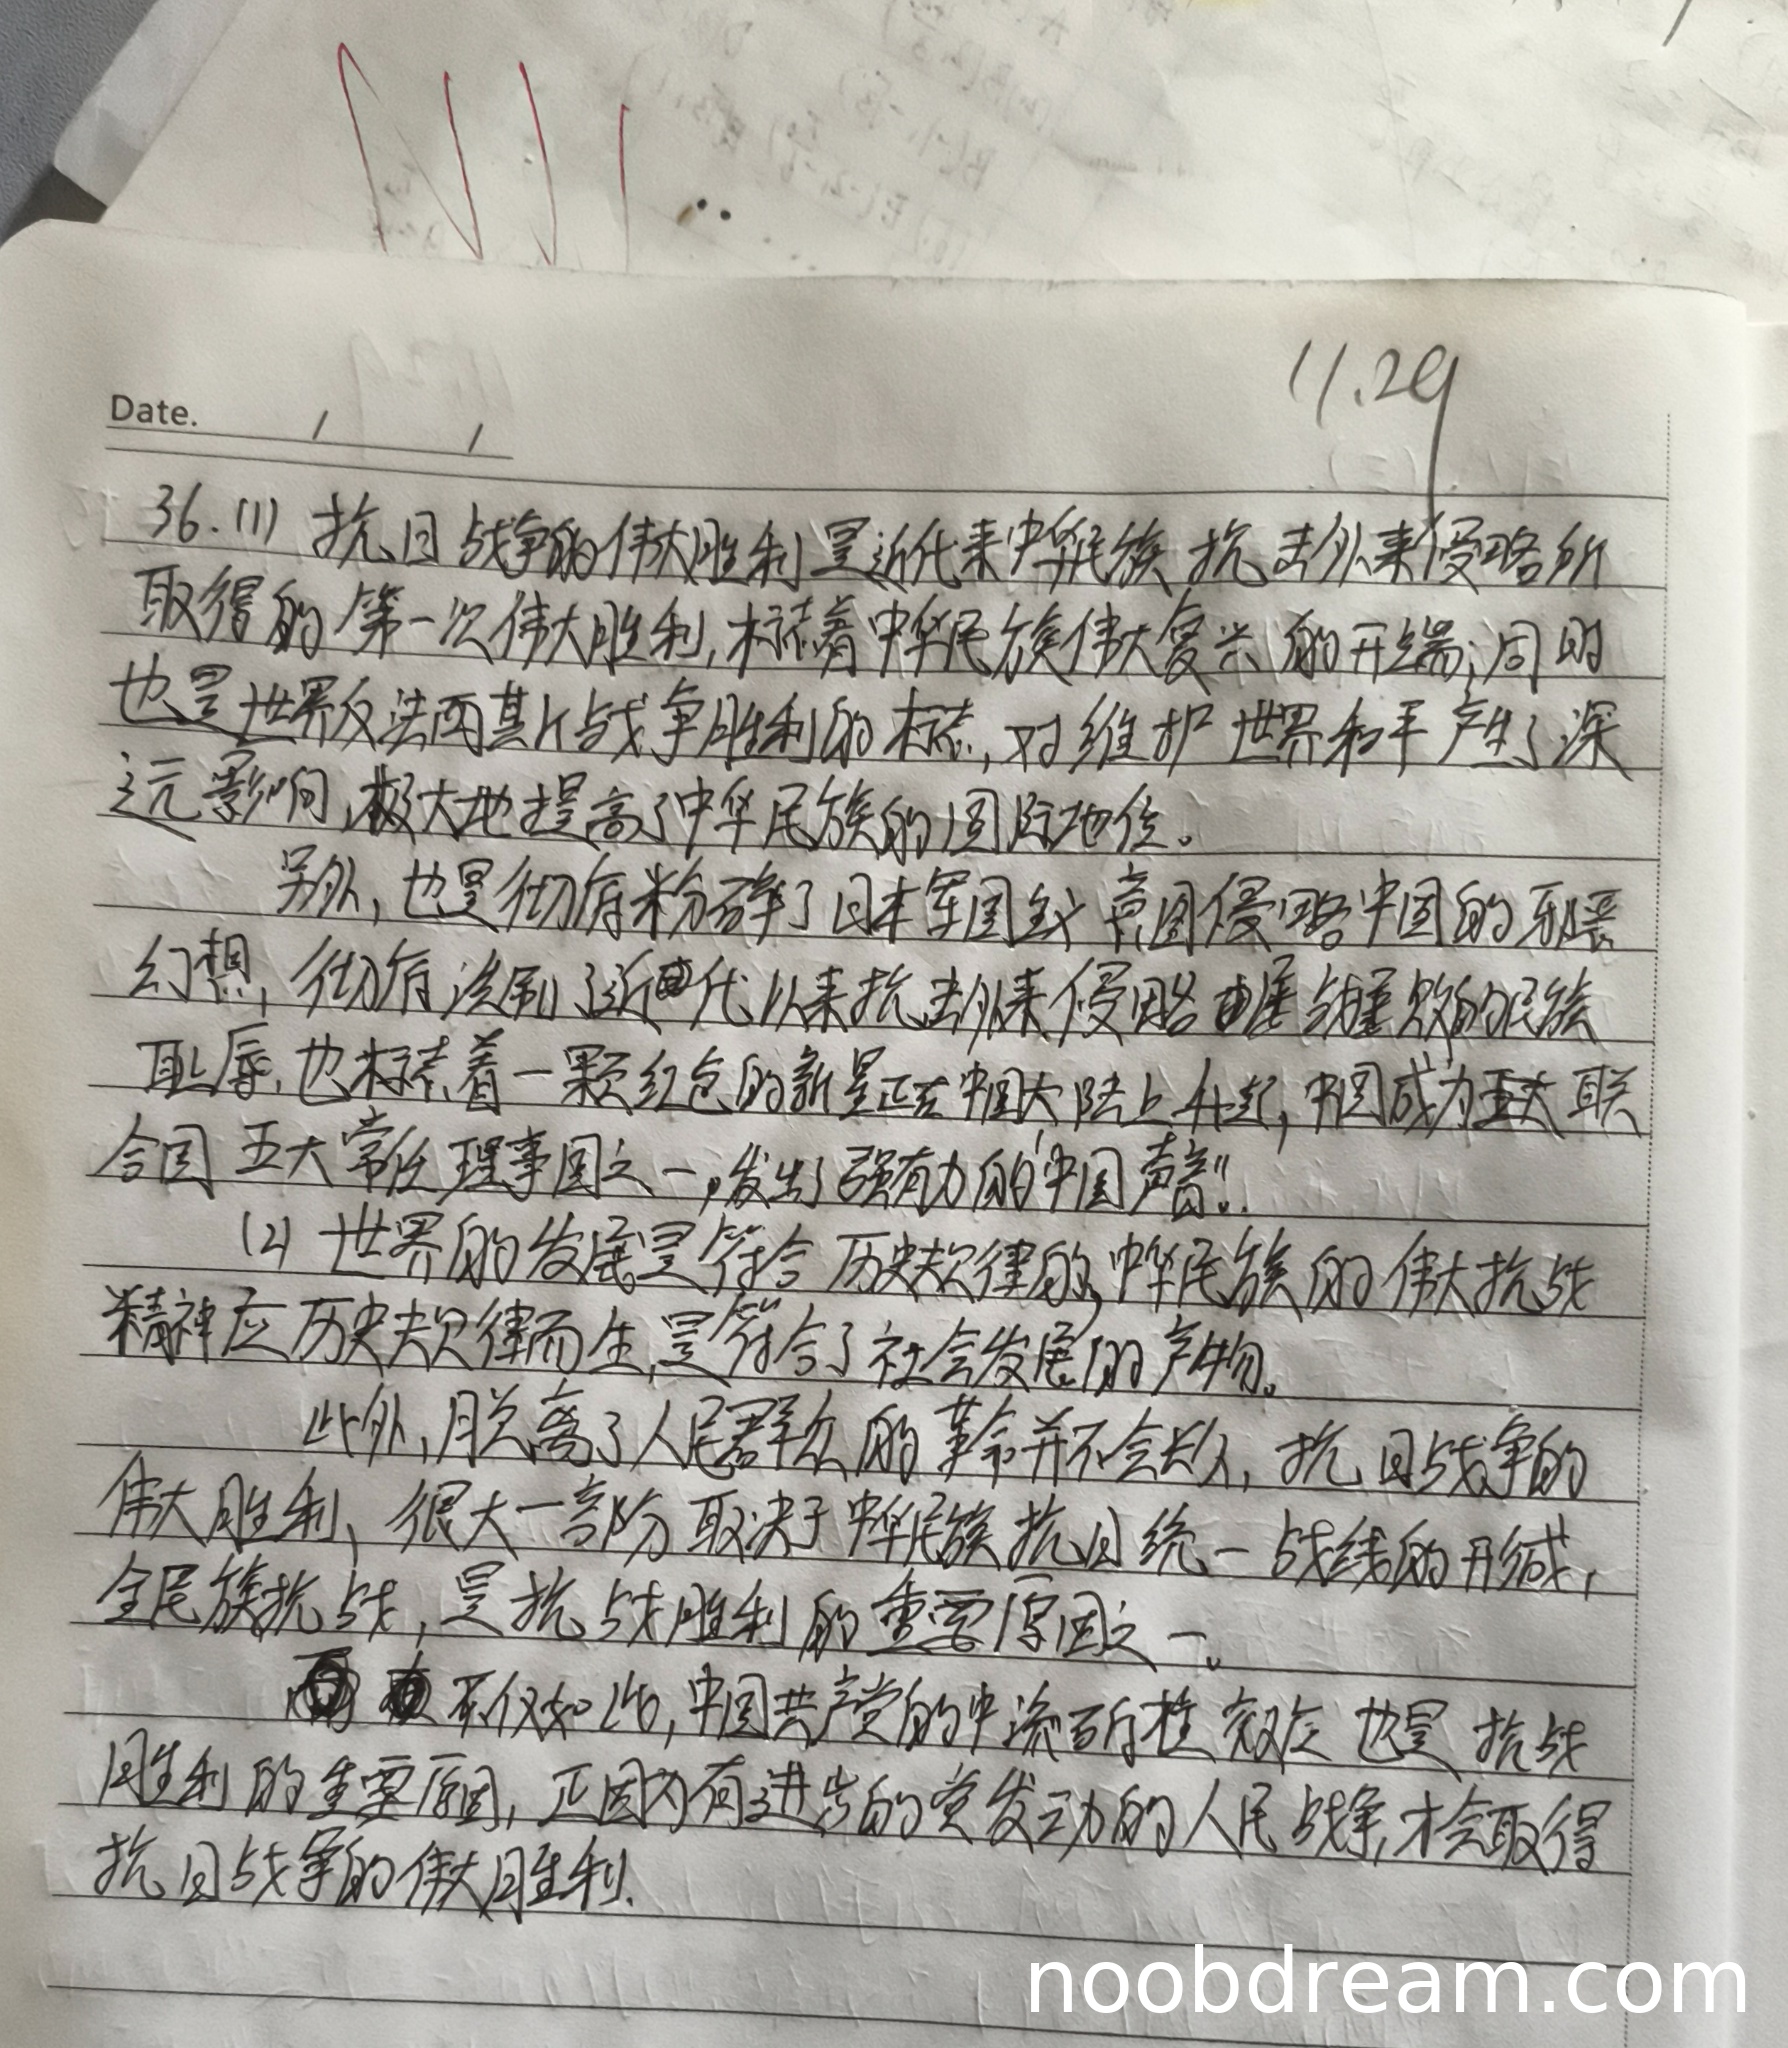 11.29
Date. / /
36.(1) 抗日战争的伟大胜利是近代来中华民族抗击外来侵略所
取得的第一次伟大胜利,标志着中华民族伟大复兴的开端;同时
也是世界反法西其斤战争胜利的标志,对维护世界和平产生了深
远影响,极大地提高了中华民族的国际地位。
另外,也是彻底粉碎了日本军国主义意图侵略中国的邪恶
幻想,彻底洗刷了近代以来抗击外来侵略屡战屡败的民族
耻辱,也标志着一颗红色的新星正在中国大陆上升起,中国成为五大联
合国五大常任理事国之一,发出了强有力的“中国声音”。
(2) 世界的发展是符合历史规律的,中华民族的伟大抗战
精神应历史规律而生,是符合了社会发展的产物。
此外,脱离了人民群众的革命并不会长久,抗日战争的
伟大胜利、很大一部分取决于中华民族抗日统一战线的形成,
全民族抗战,是抗战胜利的重要原因之一。
不仅如此,中国共产党的中流砥柱效应也是抗战
胜利的重要原因,正因为有进步的党发动的人民战争,才会取得
抗日战争的伟大胜利.
noobdream.com